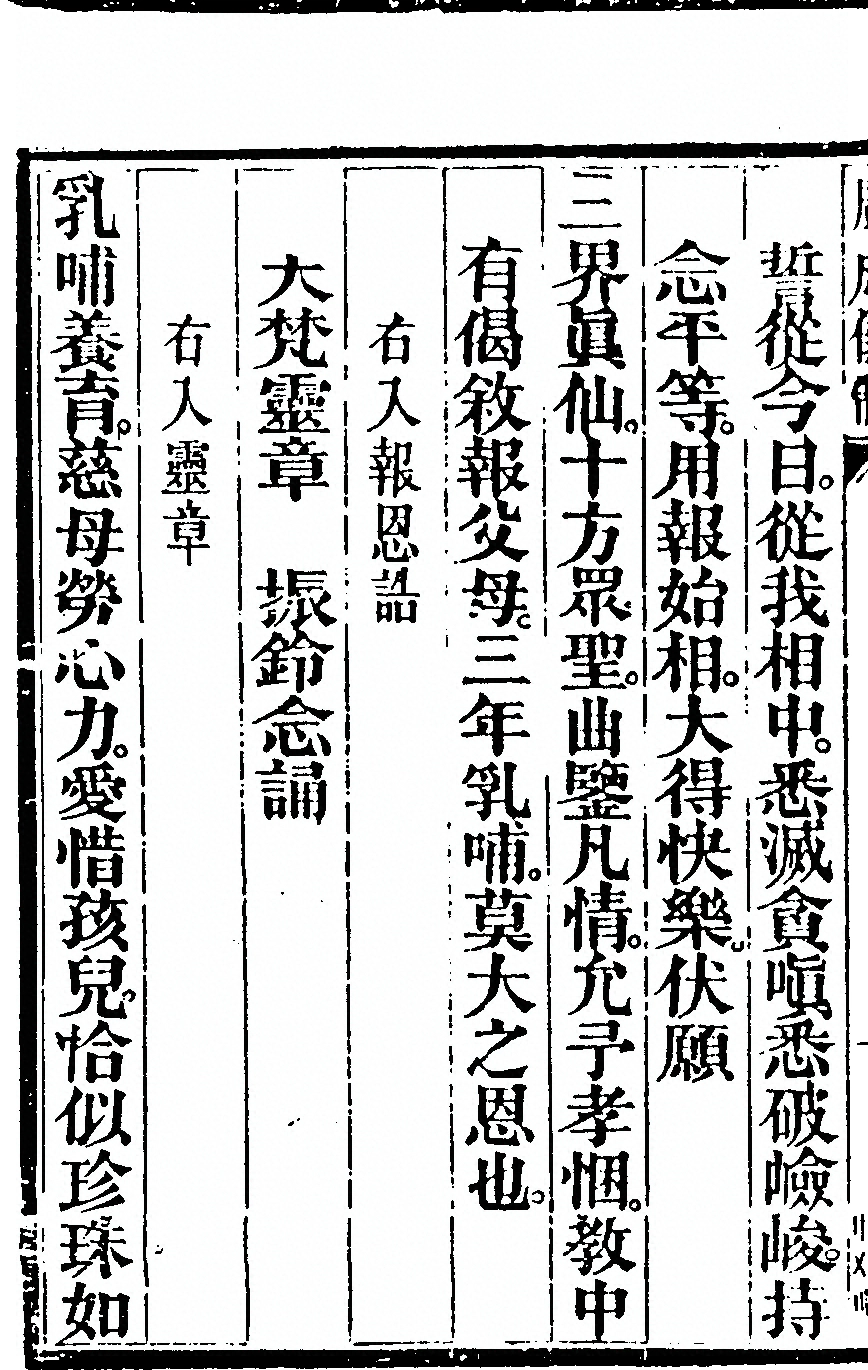 誓從今日。從我相中。悉滅貪嗔悉破嶮峻。持
念平等。用報始相。大得快樂。伏願
三界眞仙。十方眾聖。曲鑒凡情。允予孝悃。教中
有偈敘報父母。三年乳哺。莫大之恩也。
右入報恩誥
大梵靈章　振鈴念誦
右入靈章
乳哺養育。慈母勞心力。愛惜孩兒。恰似珍珠如